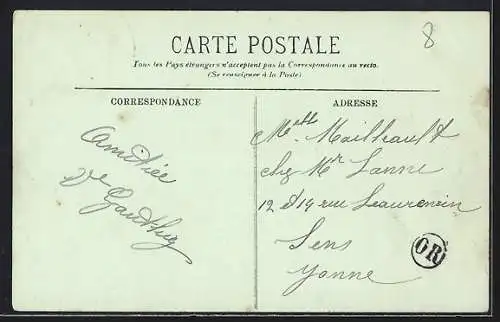 8
CARTE POSTALE
Tous les Pays étrangers n'acceptent pas la Correspondance au recto.
(Se renseigner à la Poste)
CORRESPONDANCE
ADRESSE
Amitiés
Vve Gauthier
Melle Mailhault
chez Mr Lanne
12 &14 rue
Sens
Yonne
OR